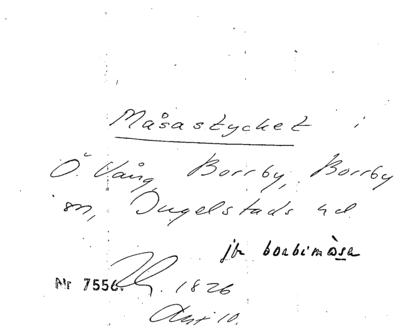 Måsastycket i
Ö Vång, Borrby, Borrby
sn, Ingelstads hd
jfr borbimåsa
Nr 7556. 1826
Akt 10.